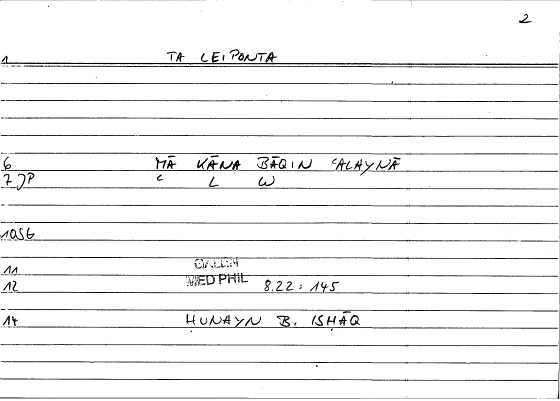 2
1 TA LEIPONTA
6 MĀ KĀNA BĀQIN ʿALAYNĀ
7 JP C L W
10SG
11 GALEN
12 MED PHIL 8.22 : 145
14 ḤUNAYN B. ISḤĀQ